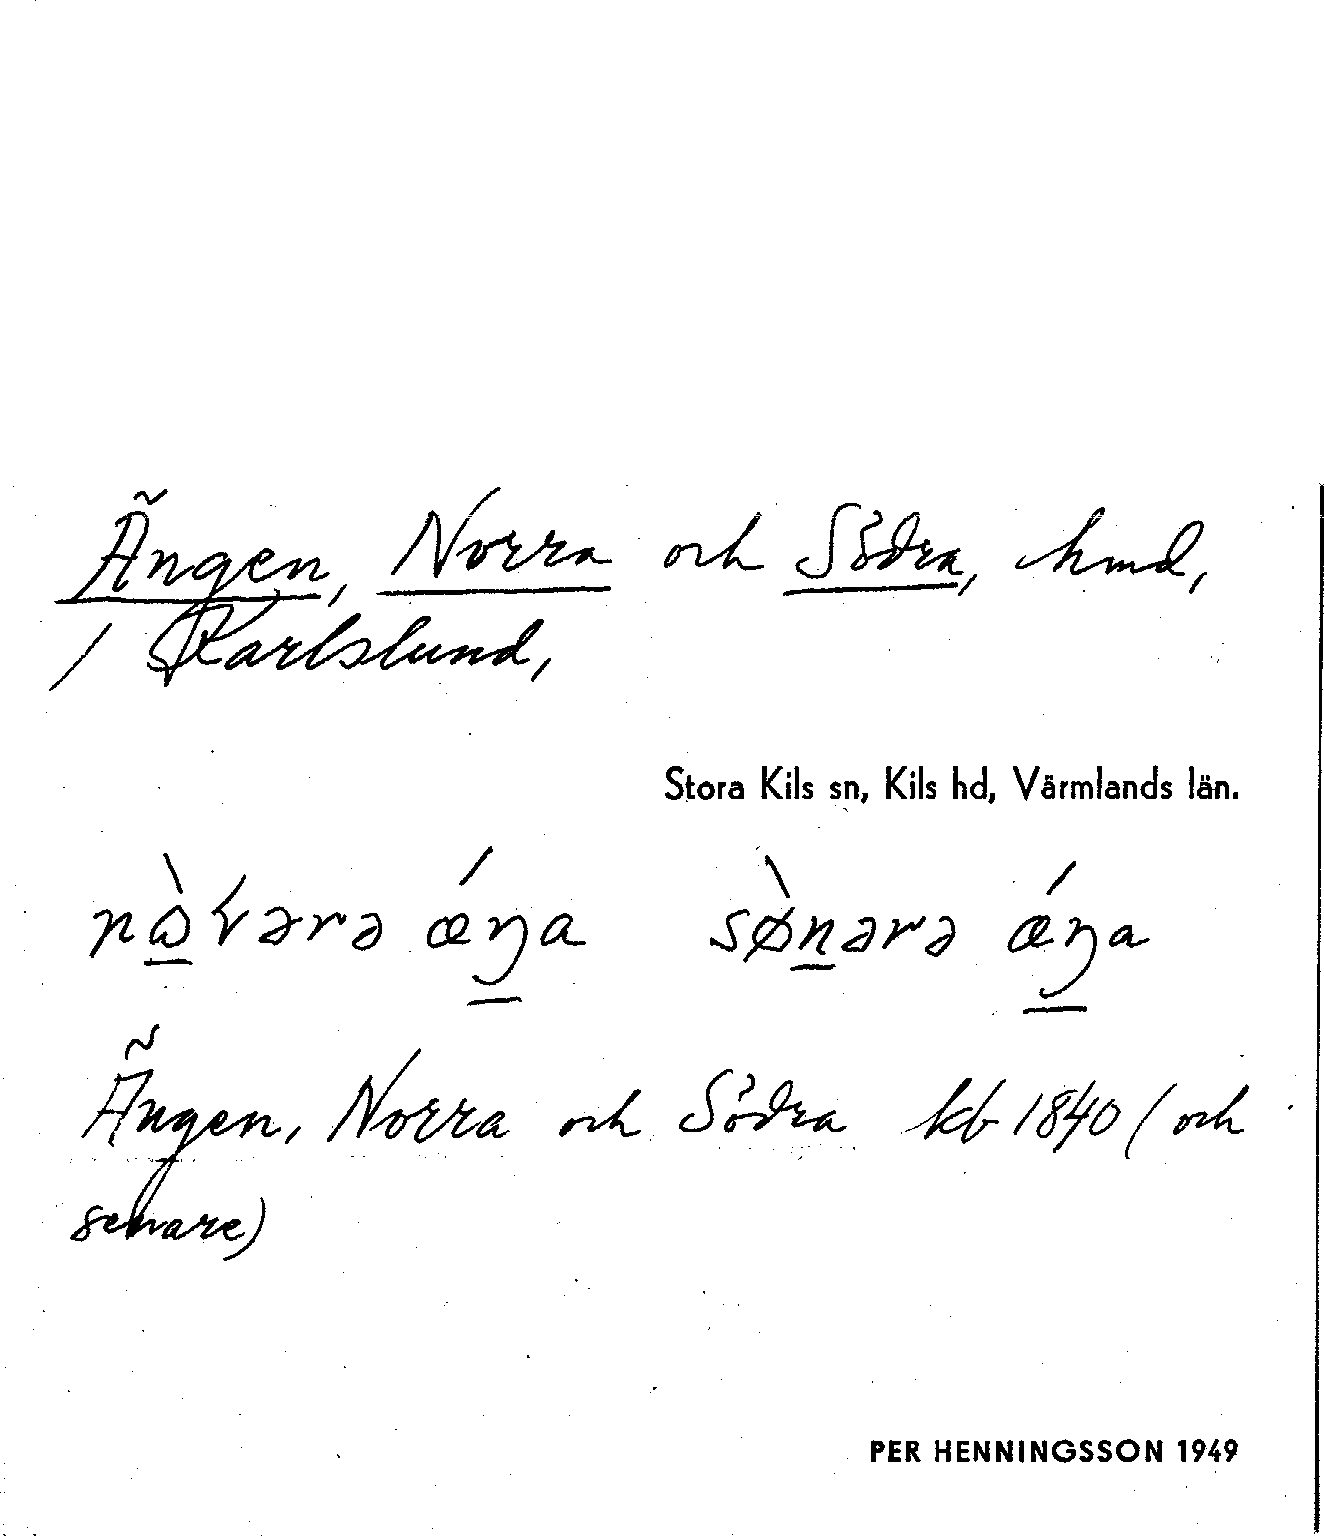 Ängen, Norra och Södra, hmd,
/ Karlslund,
Stora Kils sn, Kils hd, Värmlands län.
sø̀nərə ǽŋa
Ängen, Norra och Södra kb 1840 (och
senare)
PER HENNINGSSON 1949